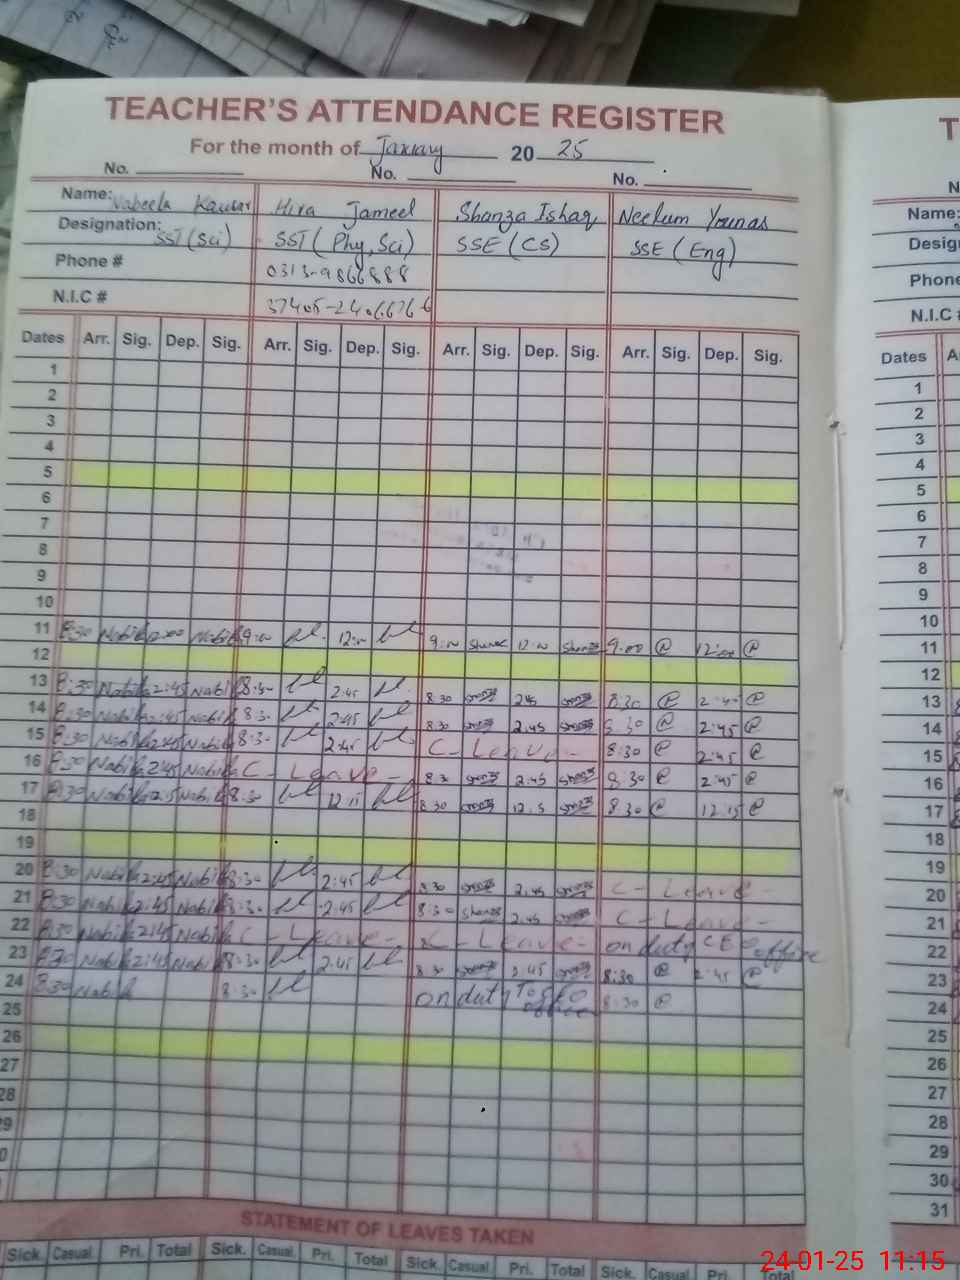 TEACHER'S ATTENDANCE REGISTER
For the month of January 2025
No. No. No.
Name: Nabeela Kausar Hira Jameel Shanza Ishaq Neelum Younas
Designation: SST(Sci) SST(Phy,Sci) SSE(CS) SSE(Eng)
Phone # 0313-9866888
N.I.C #
Dates Arr. Sig. Dep. Sig. Arr. Sig. Dep. Sig. Arr. Sig. Dep. Sig. Arr. Sig. Dep. Sig.
1
2
3
4
5
6
7
8
9
10
11 8:30 Nabila 2:00 Nabila 9:00 12:00 9:00 Shanza 12:00 Shanza 9:00 @ 12:00 @
12
13 8:30 Nabila 2:45 Nabila 8:30 2:45 8:30 2:45 8:30 @ 2:45 @
14 8:30 Nabila 2:45 Nabila 8:30 2:45 8:30 2:45 8:30 @ 2:45 @
15 8:30 Nabila 2:45 Nabila 8:30 2:45 C-Leave- 8:30 @ 2:45 @
16 8:30 Nabila 2:45 Nabila C-Leave- 8:30 2:45 8:30 @ 2:45 @
17 8:30 Nabila Nabila 8:30 12:15 8:30 12:15 8:30 @ 12:15 @
18
19
20 8:30 Nabila 2:45 Nabila 8:30 2:45 8:30 2:45 C-Leave-
21 8:30 Nabila 2:45 Nabila 8:30 2:45 8:30 Shanza 2:45 C-Leave-
22 8:30 Nabila 2:45 Nabila C-Leave- C-Leave- on duty CEO office
23 8:30 Nabila 2:45 Nabila 8:30 2:45 8:30 2:45 8:30 @ 2:45 @
24 8:30 Nabila 8:30 on duty To office 8:30 @
25
26
27
28
29
0
STATEMENT OF LEAVES TAKEN
Sick. Casual. Pri. Total Sick. Casual. Pri. Total Sick. Casual. Pri. Total Sick. Casual. Pri. Total
T
N
Name:
Design
Phone
N.I.C #
Dates A
1
2
3
4
5
6
7
8
9
10
11
12
13
14
15
16
17
18
19
20
21
22
23
24
25
26
27
28
29
30
31
24-01-25 11:15